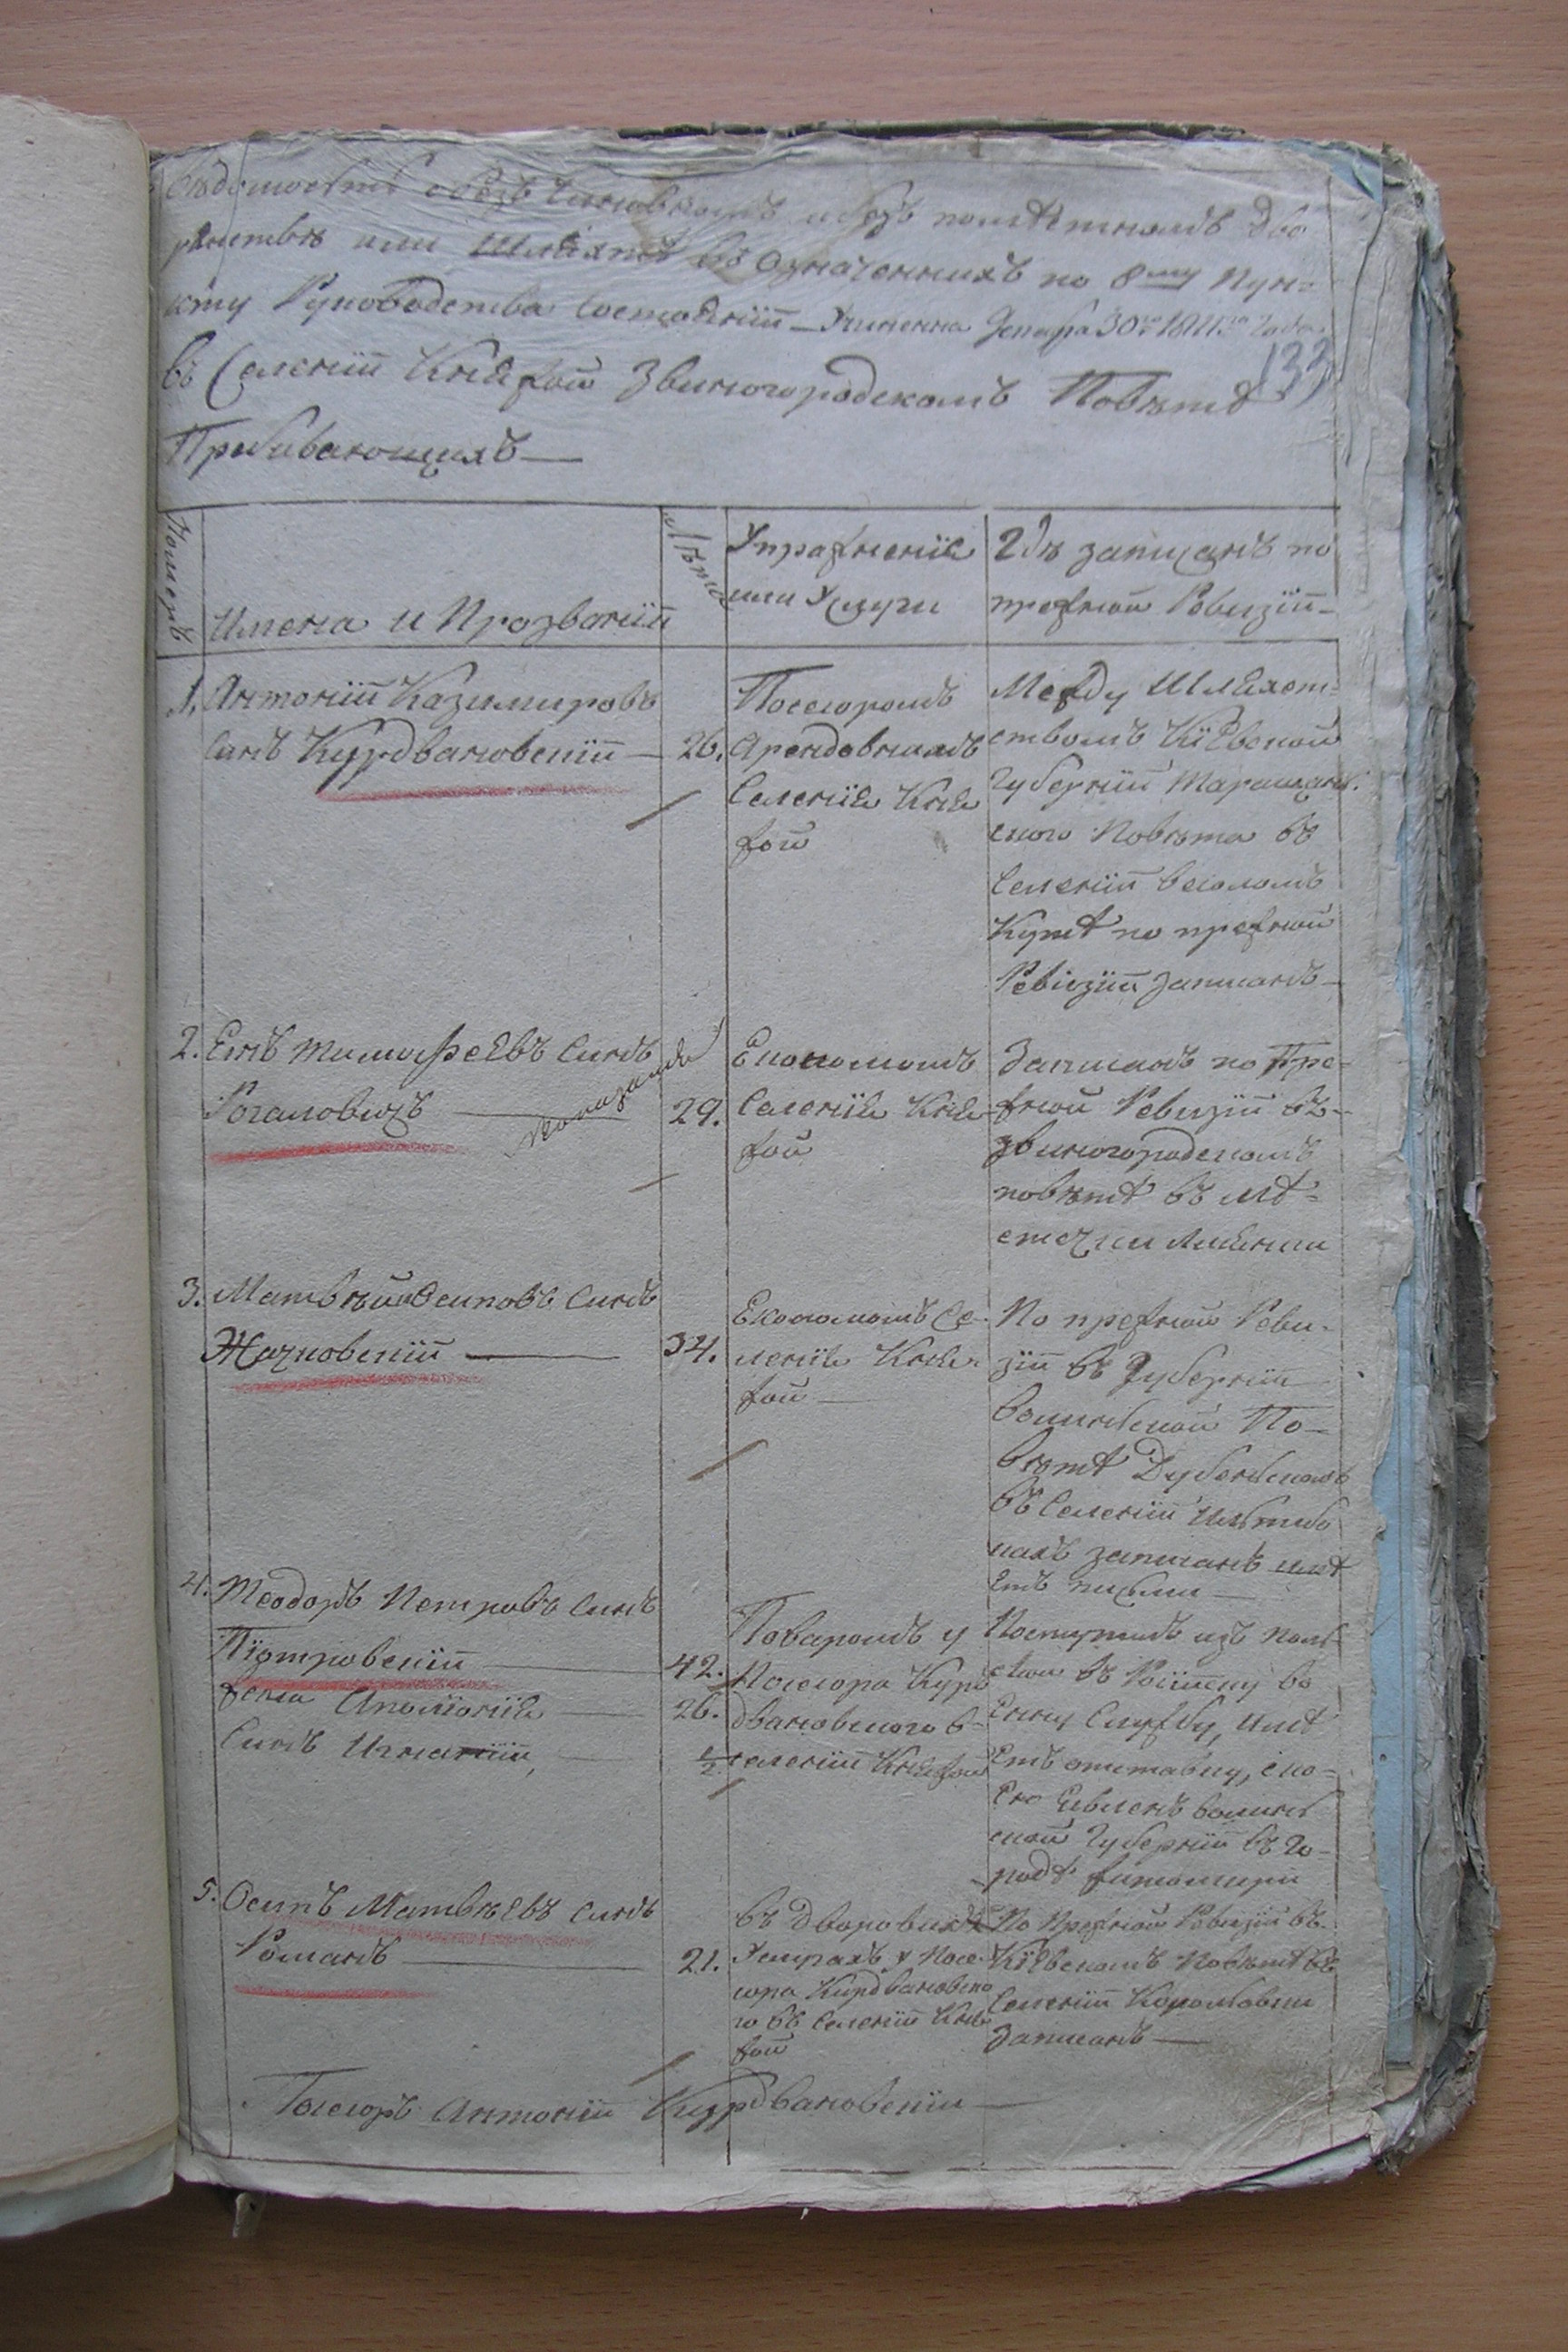 Ведомость о безъ Чиновномъ и безъ поместномъ Дво
рянствѣ или Шляхтѣ въ Означенныхъ по 8му Пун-
кту Руководства Состояніи — Учиненна Декабря 30го 1811го Года
133
въ Селеніи Княжой Звиногородскомъ Повѣте
Пребивающихъ —
Номеръ
Имена и Прозваніи
Лѣта
Упражненіе
или Услуги
Где записанъ по
прежной Ревизіи —
1. Антоній Казимировъ
Синъ Курдвановскій — 26.
Посесоромъ
Арендовнимъ
Селенія Кня
жой
Между Шляхет-
ствомъ Кіевской
Губерніи Таращан-
ского Повѣта въ
Селеніи
Куте по прежной
Ревизіи Записанъ —
2. Тимофеевъ Синъ
Рогаловичъ — 29.
Економомъ
Селенія Кня-
жой
Записанъ по Пре-
жной Ревизіи въ —
Звиногородскомъ
повѣте въ ме-
стечки Лисянки
3. Матвѣй Осиповъ Синъ
Жачковскій — 34.
Економомъ Се-
ленія Кня-
жой —
По прежной Реви-
зіи въ Губерніи
Волинской По-
вѣте Дубенскомъ
въ Селеніи
записанъ име
етъ письми —
4. Теодоръ Петровъ Синъ
Піотровскій — 42.
жена Аполіонія — 26.
Синъ Игнатій, — 1/2
Поваромъ у
Посесора Курд
двановского в-
селеніи Княжой
Поступилъ изъ Поль-
в Російску во
енну Службу, име
етъ отставку, с ко-
ею явленъ Волинь
ской Губерніи въ го-
роде Житомири
5. Осипъ Матвѣевъ Синъ
Романъ — 21.
въ дворовихъ
Услугахъ у Посе-
сора Курдвановско
го въ Селеніи Кня
жой
По Прежной Ревизіи въ-
Кіевскомъ Повѣте въ
Селеніи
Записанъ —
Посесоръ Антоній Курдвановскій —